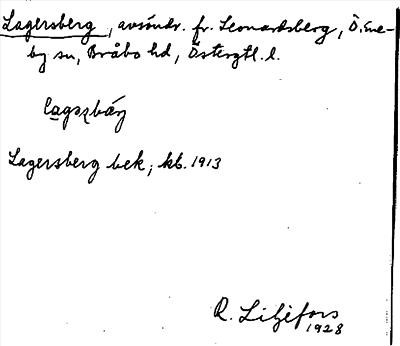 Lagersberg, avsöndr. fr. Leonardsberg, Ö. Ene-
by sn, Bråbo hd, Östergtl. l.
Lagersberg bek; kb. 1913
R. Liljefors
1928